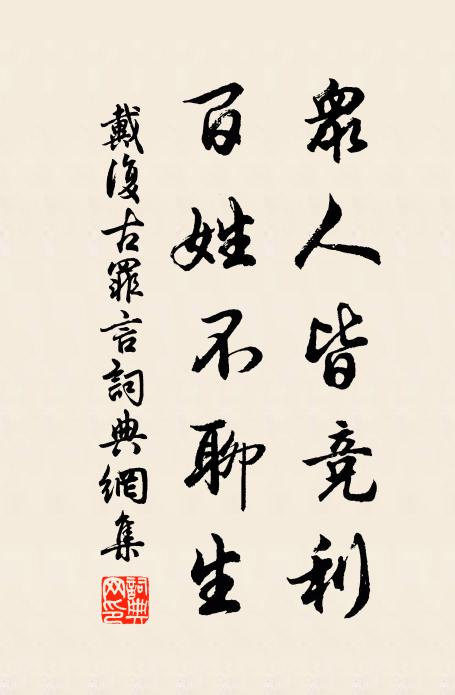 眾人皆竞利
百姓不聊生
戴復古罪言詞典網集
詞典
网印